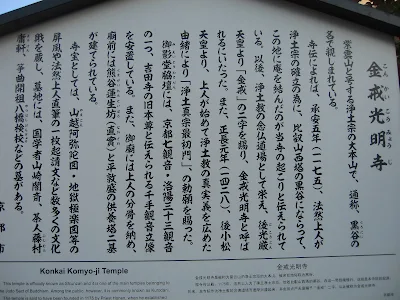 金戒光明寺
こんかいこうみょうじ
紫雲山と号する浄土宗の大本山で、通称、黒谷の
名で親しまれている。
寺伝によれば、承安五年(一一七五)、法然上人が
浄土宗の確立の為に、比叡山西塔の黒谷にならって、
この地に庵を結んだのが当寺の起こりと伝えられて
いる。以後、浄土教の念仏道場として栄え、後光厳
天皇より「金戒」の二字を賜り、金戒光明寺と呼ば
れるにいたった。また、正長元年(一四二八)、後小松
天皇より、上人が始めて浄土教の真実義を広めた
由緒により「浄土真宗最初門」の勅額を賜った。
御影堂脇壇には、京都七観音・洛陽三十三観音
の一つ、吉田寺の旧本尊と伝えられる千手観音立像
を安置している。また、御廟には上人の分骨を納め、
廟前には熊谷蓮生坊(直実)と平敦盛の供養塔二基
が建てられている。
寺宝としては、山越阿弥陀図・地獄極楽図等の
屏風や法然上人直筆の一枚起請文など数多くの文化
財を蔵し、墓地には、国学者山崎闇斎、茶人藤村
庸軒、箏曲開祖八橋検校などの墓がある。
京都市
Konkai Komyo-ji Temple
金戒光明寺